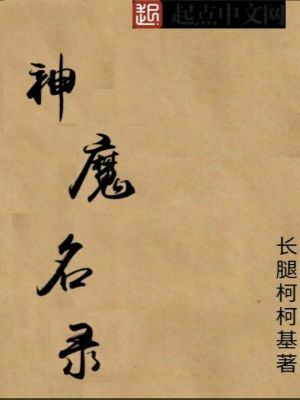 起 起点中文网
神魔名录
长腿柯柯基著